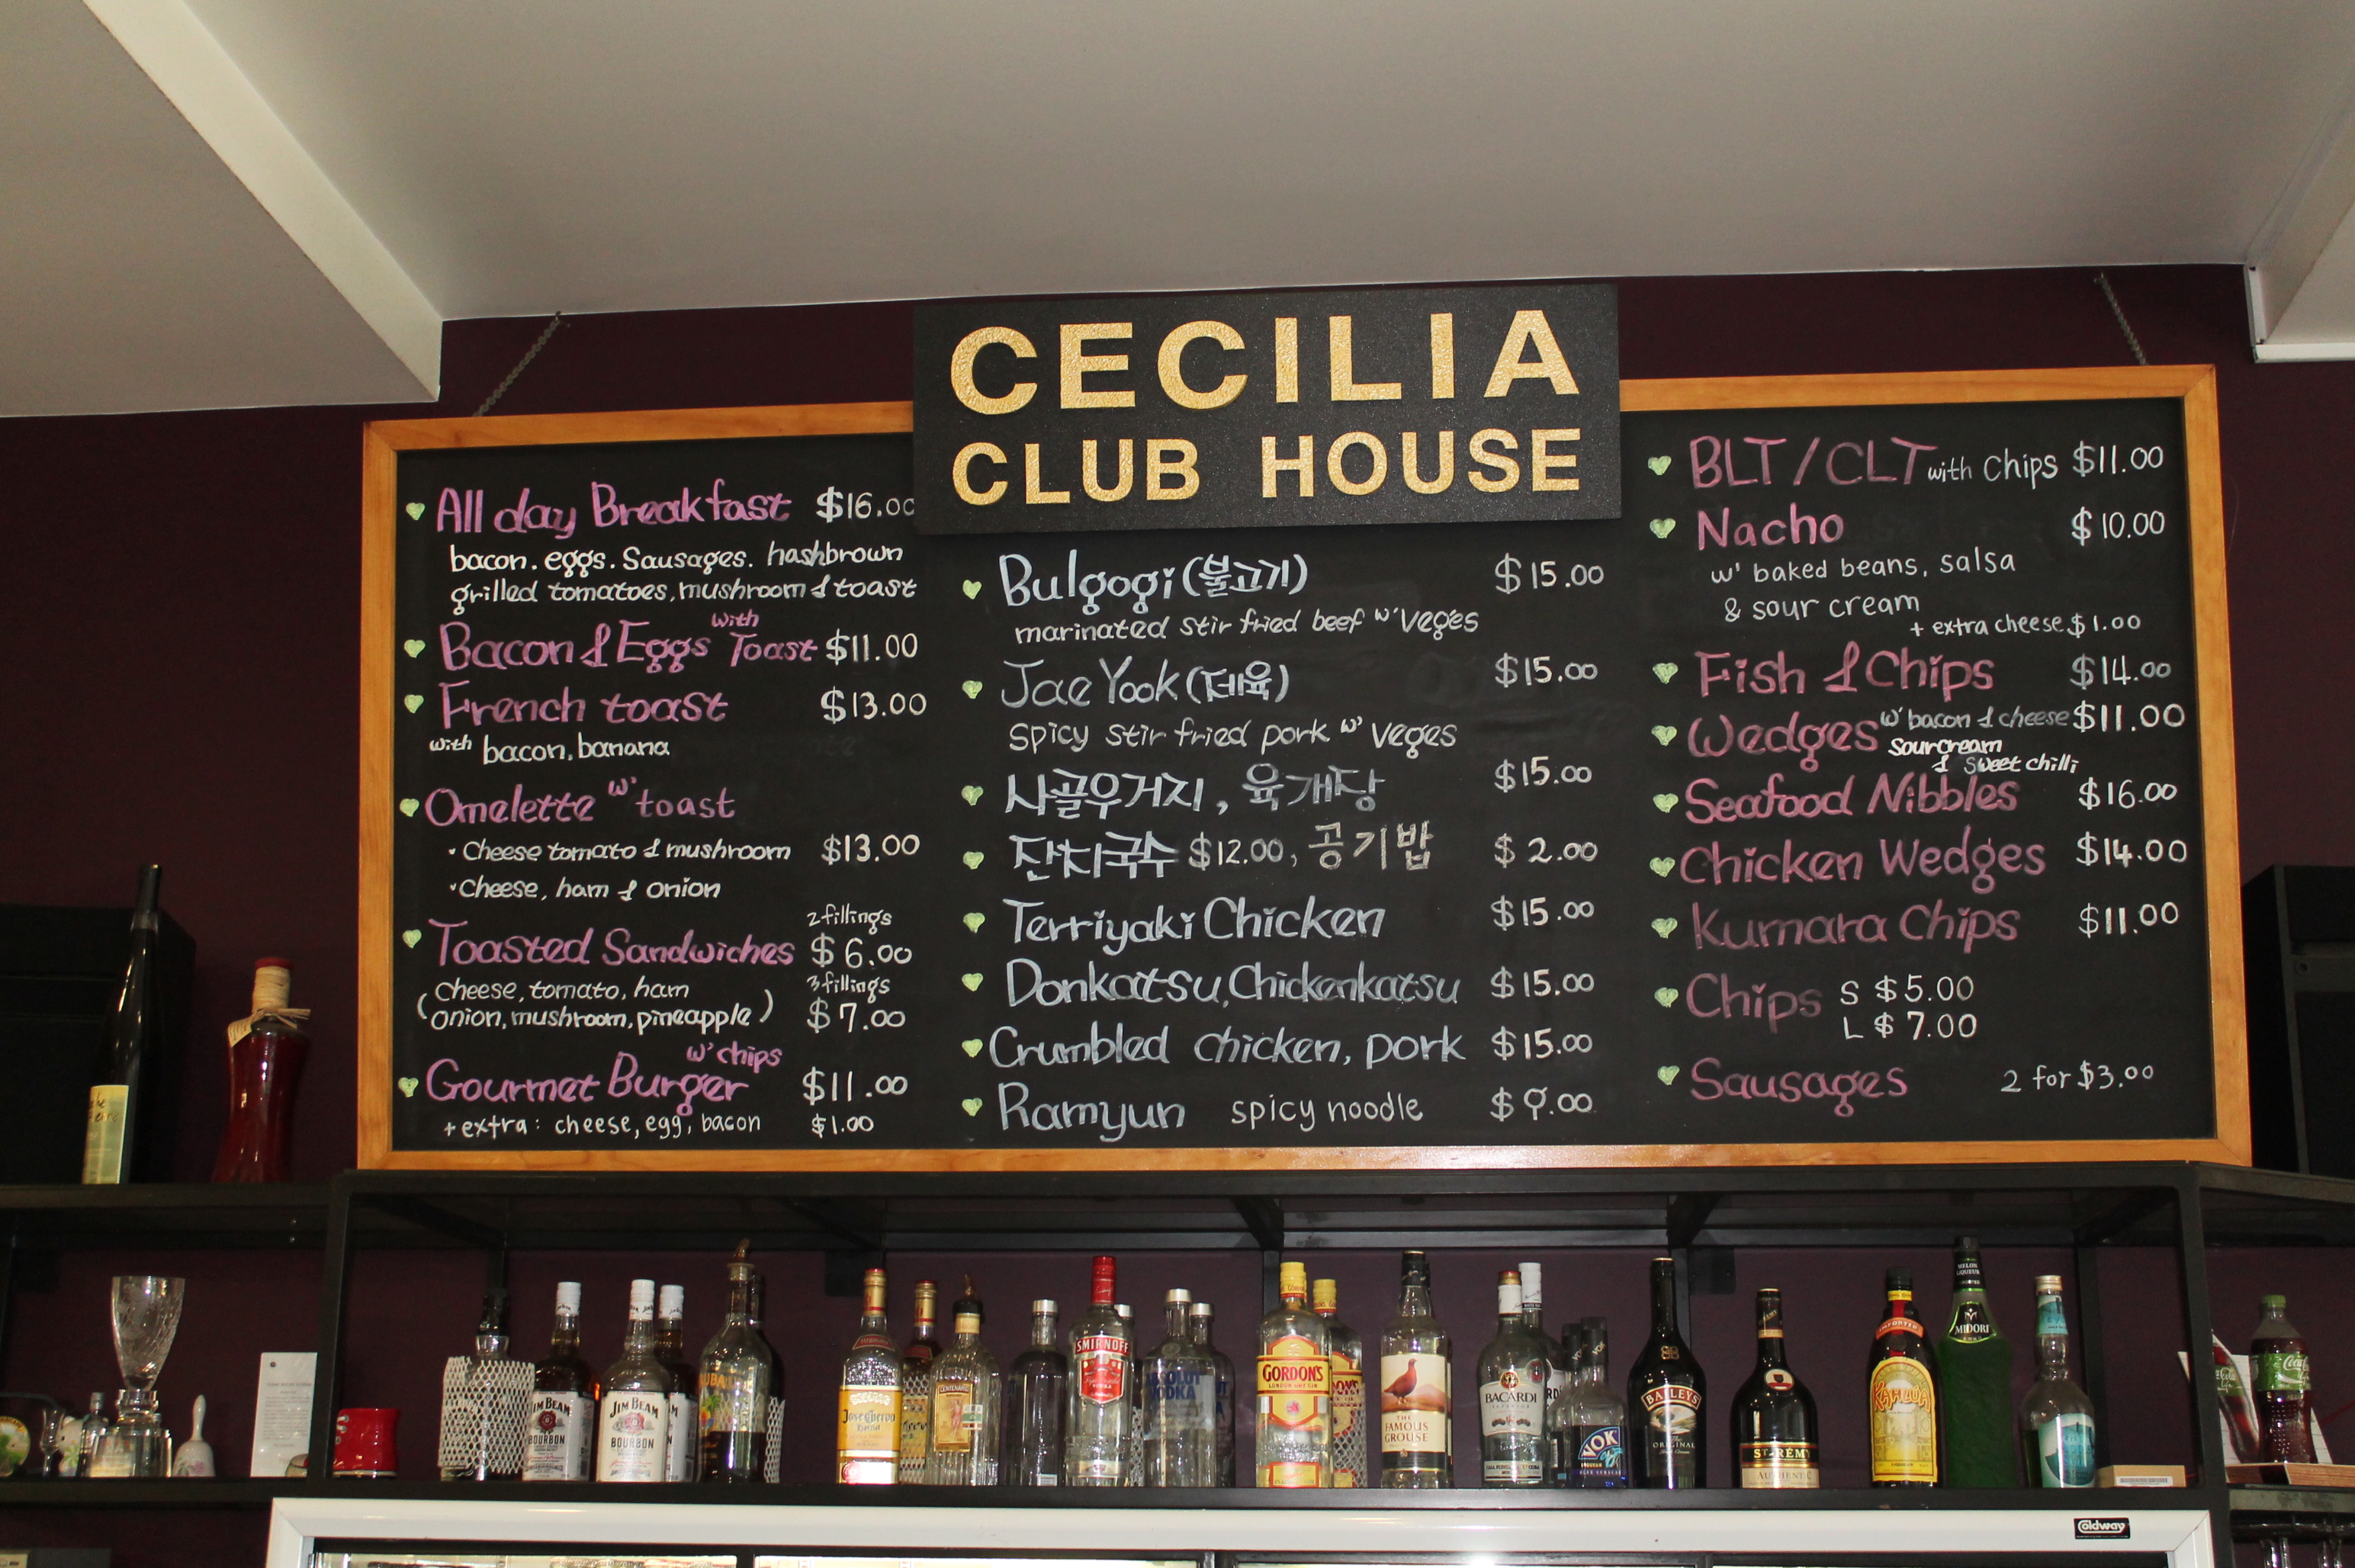 CECILIA
CLUB HOUSE
All day Breakfast $16.00
bacon. eggs. Sausages. hashbrown
grilled tomatoes, mushroom & toast
Bacon & Eggs with Toast $11.00
French toast $13.00
with bacon, banana
Omelette w' toast
• Cheese tomato & mushroom $13.00
• Cheese, ham & onion
Toasted Sandwiches 2 fillings $6.00
(cheese, tomato, ham 3 fillings
onion, mushroom, pineapple) $7.00
Gourmet Burger w' chips $11.00
+ extra: cheese, egg, bacon $1.00
Bulgogi (불고기) $15.00
marinated stir fried beef w' Veges
Jae Yook (제육) $15.00
Spicy stir fried pork w' Veges
사골우거지, 육개장 $15.00
잔치국수 $12.00, 공기밥 $2.00
Terriyaki Chicken $15.00
Donkatsu, Chickenkatsu $15.00
Crumbled chicken, pork $15.00
Ramyun spicy noodle $9.00
BLT/CLT with Chips $11.00
Nacho $10.00
w' baked beans, salsa
& sour cream
+ extra cheese $1.00
Fish & Chips $14.00
Wedges w' bacon & cheese $11.00
Sour cream
& sweet chilli
Seafood Nibbles $16.00
Chicken Wedges $14.00
Kumara Chips $11.00
Chips S $5.00
L $7.00
Sausages 2 for $3.00
JIM BEAM
BOURBON
JIM BEAM
BOURBON
Jose Cuervo
SMIRNOFF
ABSOLUT
VODKA
GORDON'S
LONDON DRY GIN
THE
FAMOUS
GROUSE
BACARDI
VOK
BAILEYS
ORIGINAL
ST-RÉMY
AUTHENTIC
IMPORTED
KAHLUA
MELON
LIQUEUR
MIDORI
Coca-Cola
Coldway